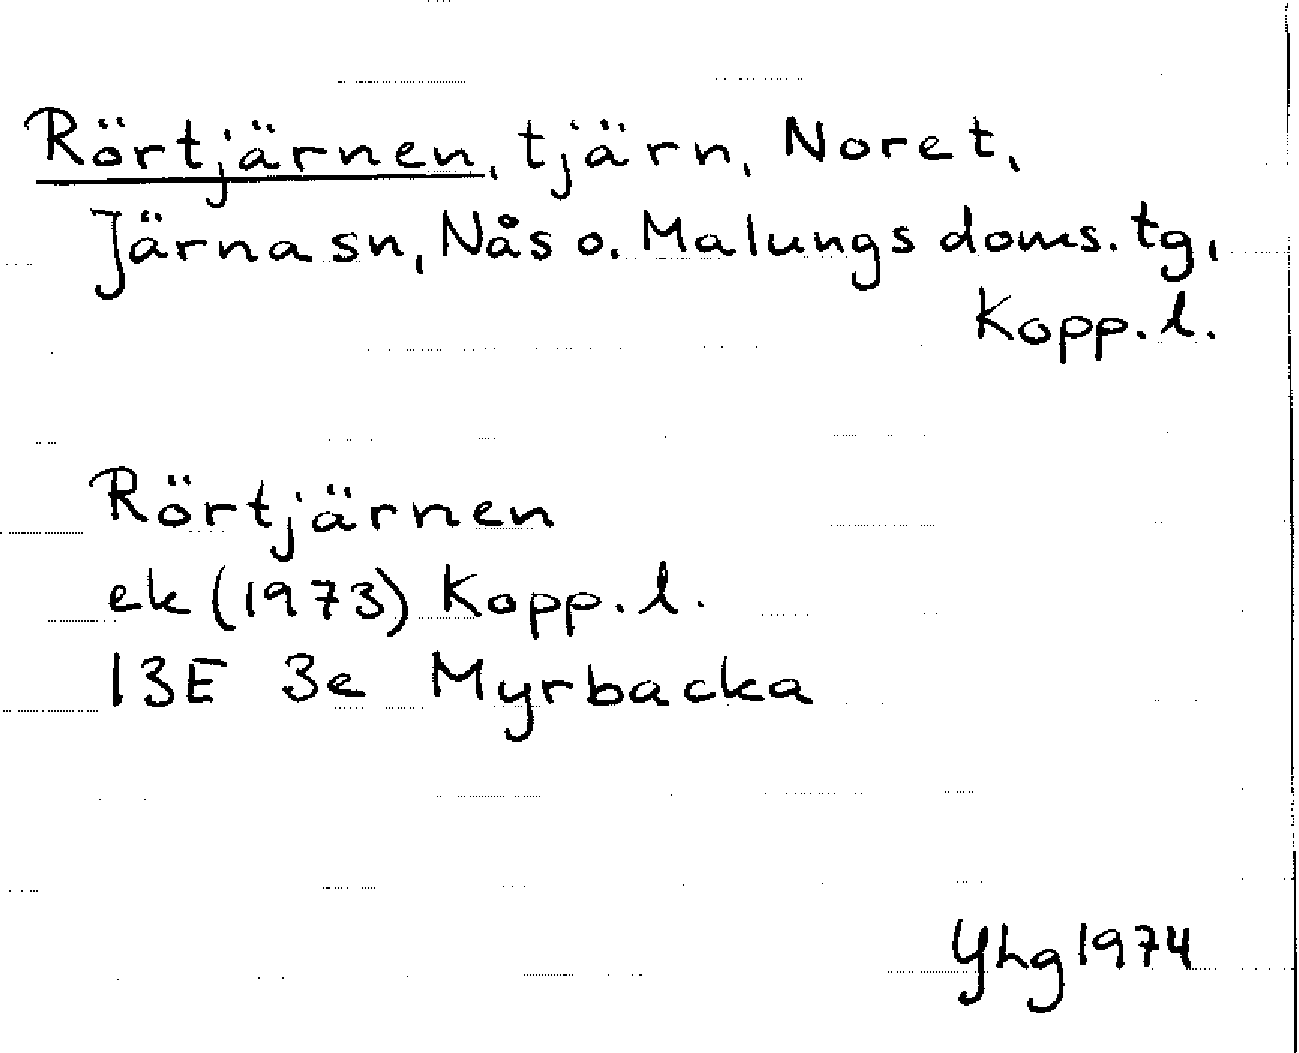 Rörtjärnen, tjärn, Noret,
Järna sn, Nås o. Malungs doms. tg,
Kopp. l.
Rörtjärnen
ek (1973) Kopp. l.
13E 3e Myrbacka
YHg 1974